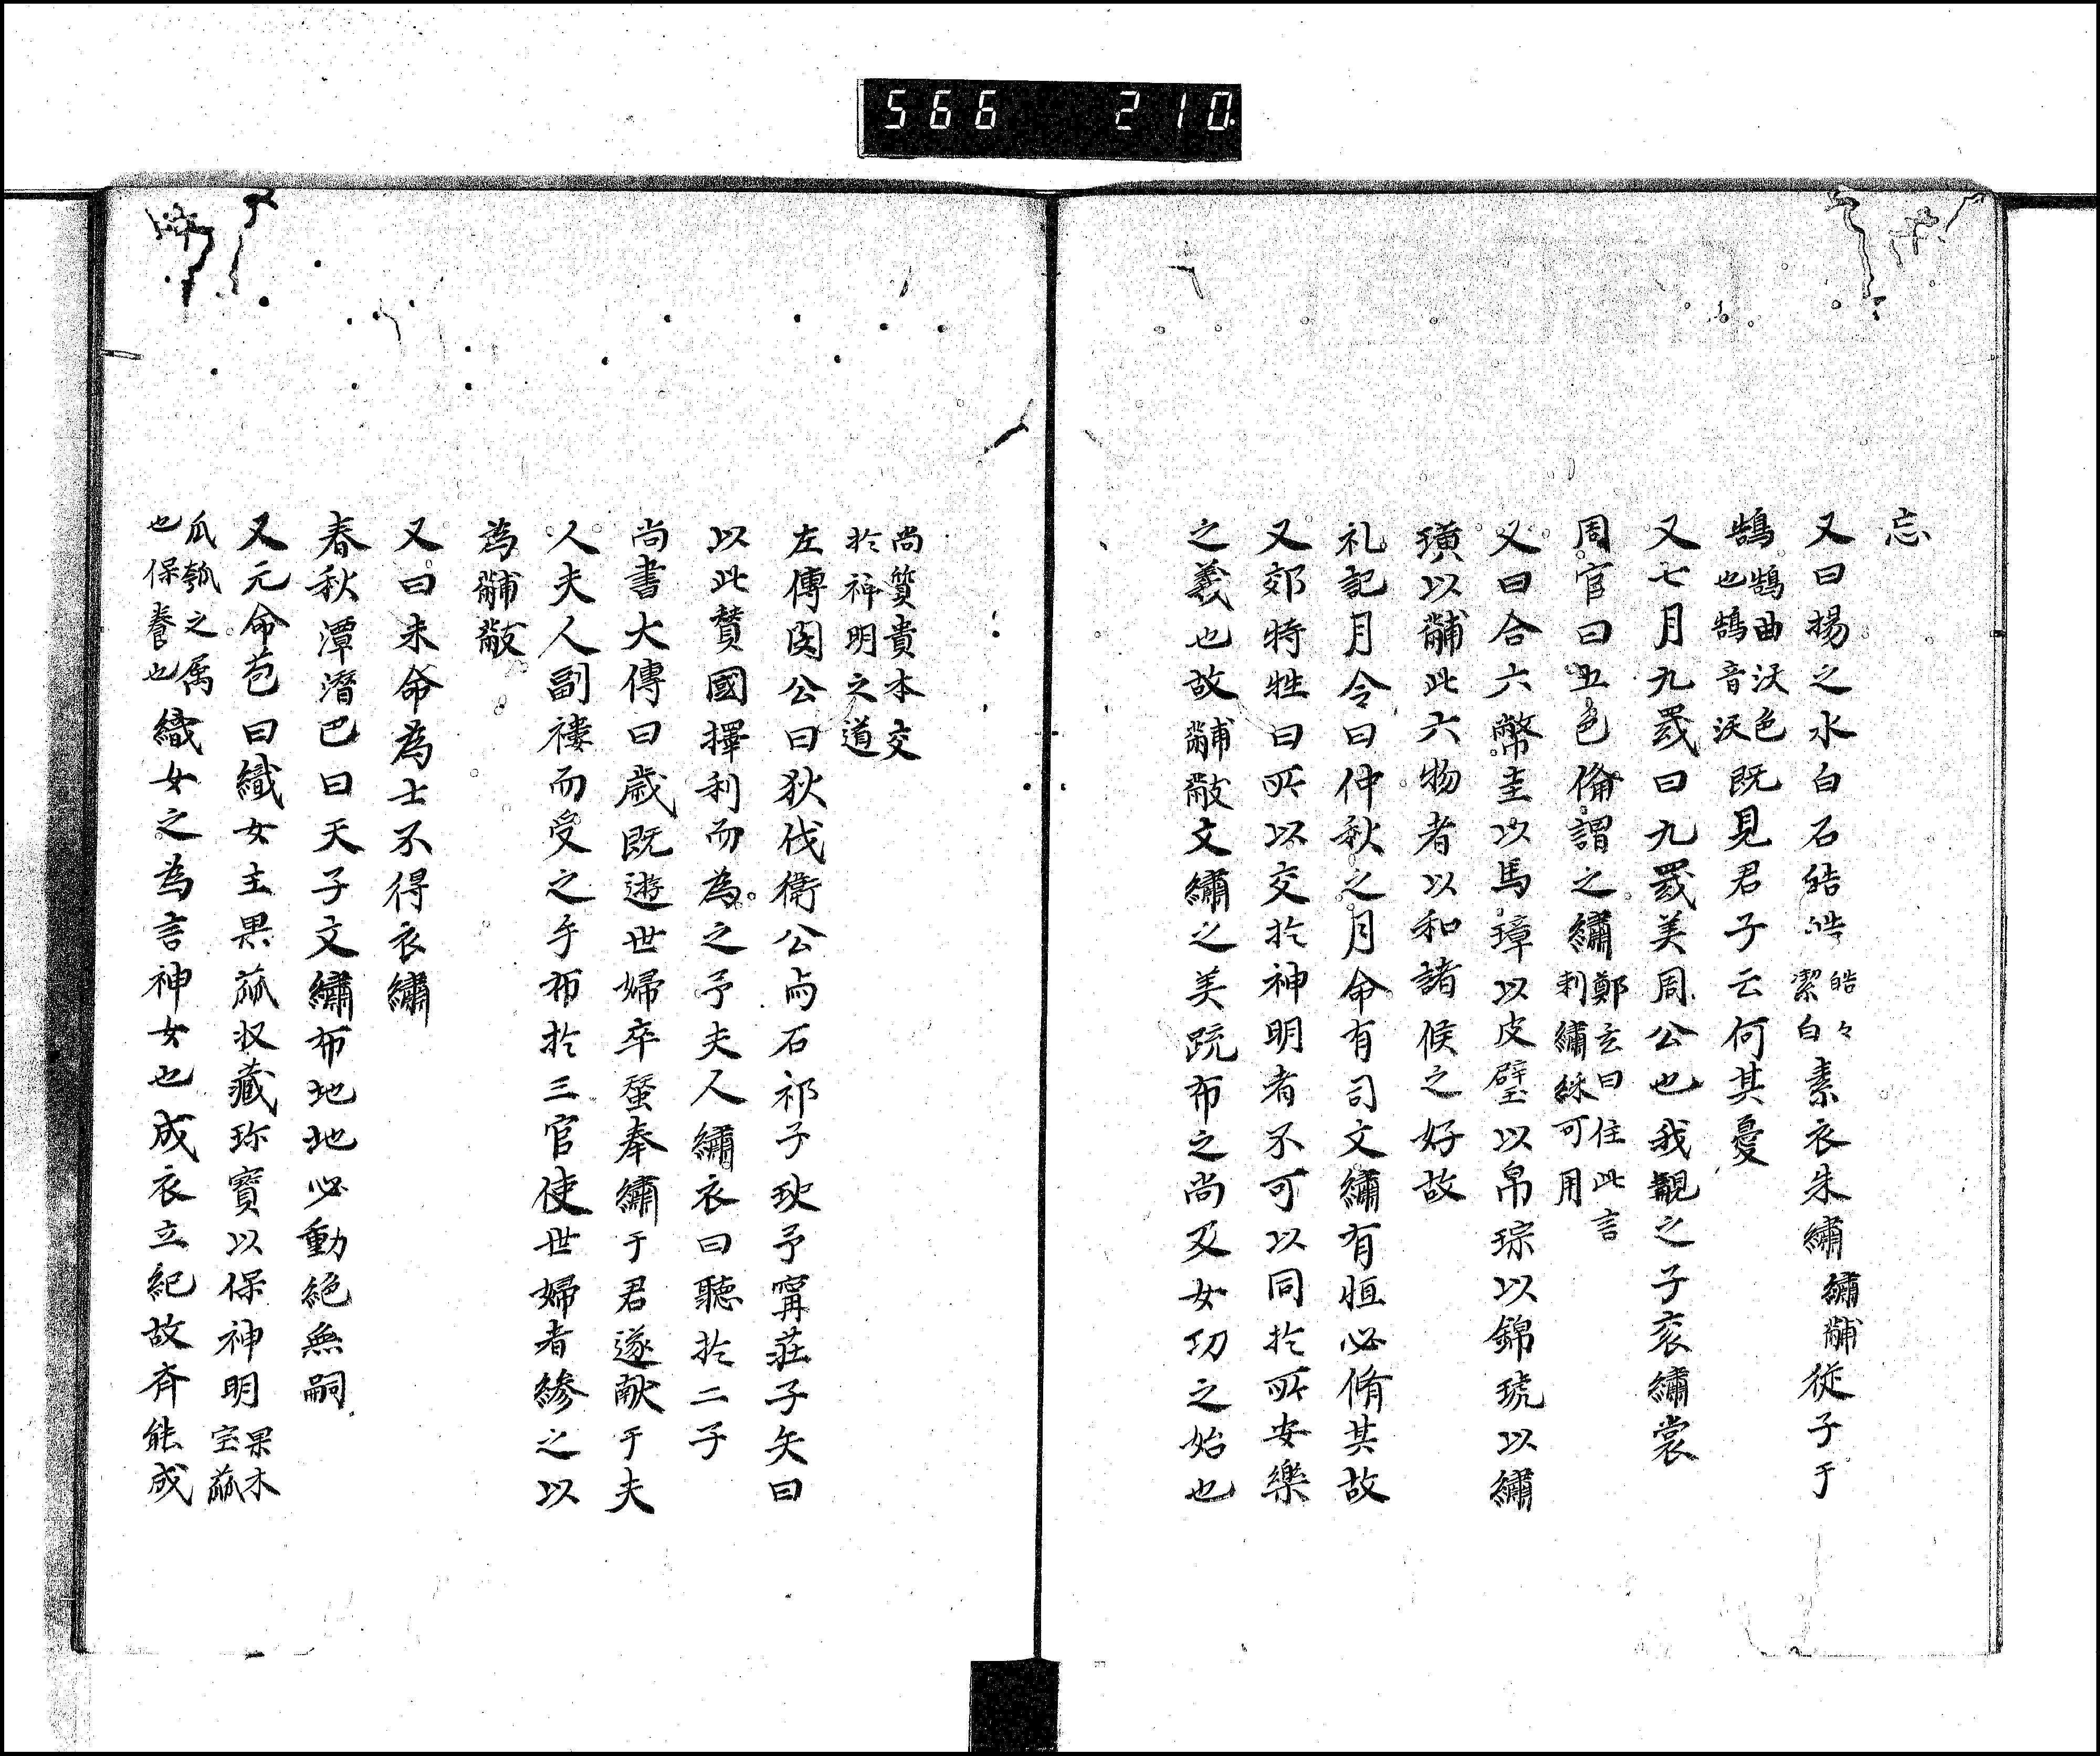 566 210
忘
又曰揚之水白石皓皓皓々潔白素衣朱繡繡黼從子于
鵠鵠曲沃色也鵠音沃既見君子云何其憂
又七月九罭曰九罭美周公也我覯之子衮繡裳
周官曰五色俻謂之繡鄭玄曰住此言刺繡綵可用
又曰合六幣圭以馬璋以皮璧以帛琮以錦琥以繡
璜以黼此六物者以和諸侯之好故
礼記月令曰仲秋之月命有司文繡有恒必脩其故
又郊特牲曰所以交於神明者不可以同於所安樂
之義也故黼黻文繡之美䟽布之尚反女功之始也
尚質貴本交於神明之道
左傳閔公曰狄伐衛公与石祁子玦予寗莊子矢曰
以此賛國擇利而為之予夫人繡衣曰聽於二子
尚書大傳曰歳既遊世婦卒蚕奉繡于君遂献于夫
人夫人副褸而受之手布於三官使世婦者縿之以
為黼黻
又曰未命為士不得衣繡
春秋潭潛巴曰天子文繡布地地必動絕無嗣
又元命苞曰織女主果蓏収藏珎寳以保神明果木宝蓏
瓜瓠之属也保養也織女之為言神女也成衣立紀故斉能成